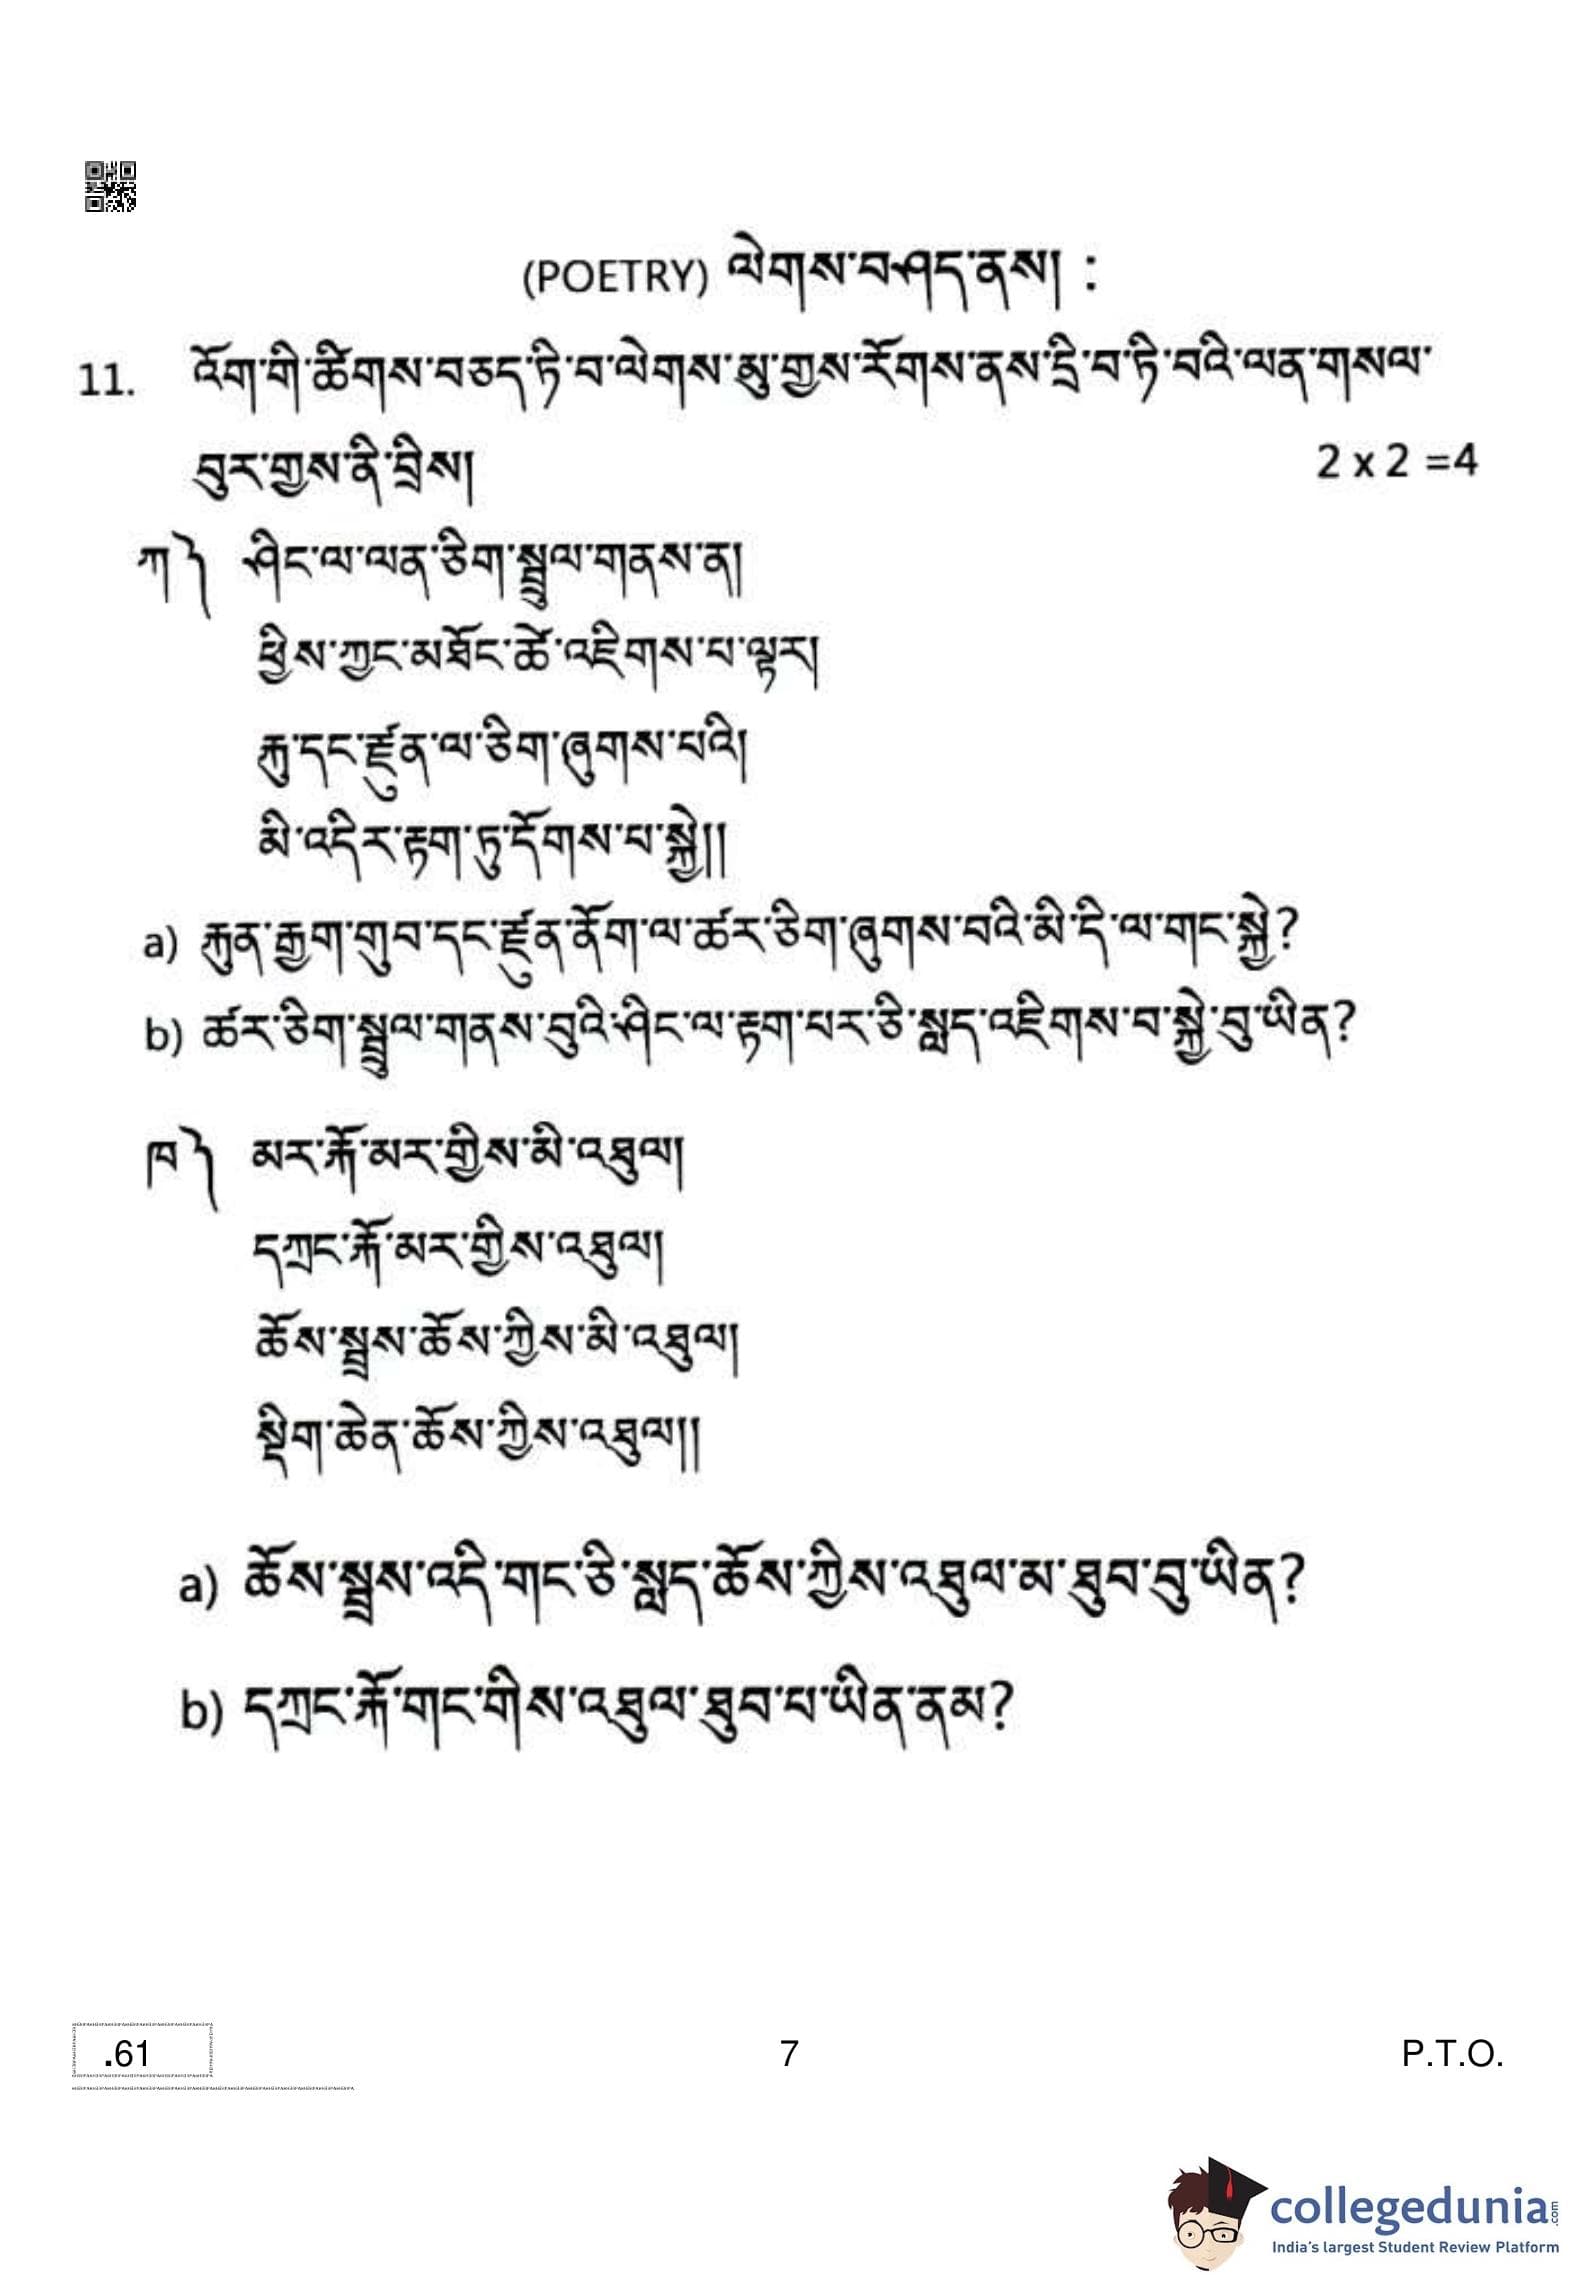 (POETRY) ལེགས་བཤད་ནས། :
11. འོག་གི་ཚིགས་བཅད་ཏི་བ་ལེགས་མུ་གྱས་རོགས་ནས་དྲི་བ་ཏི་བའི་ལན་གསལ་
བུར་གྱས་ནི་བྲིས།
2 x 2 =4
ཀ༽ ཤིང་ལ་ལན་ཅིག་སྦྲུལ་གནས་ན།
ཕྱིས་ཀྱང་མཐོང་ཚེ་འཇིགས་པ་ལྟར།
རྐུ་དང་རྫུན་ལ་ཅིག་ཞུགས་པའི།
མི་འདིར་རྟག་ཏུ་དོགས་པ་སྐྱེ།།
a) རྐུན་རྒྱག་གུབ་དང་རྫུན་ནོག་ལ་ཚར་ཅིག་ཞུགས་བའི་མི་དི་ལ་གང་སྐྱེ?
b) ཚར་ཅིག་སྦྲུལ་གནས་བུའི་ཤིང་ལ་རྟག་པར་ཅི་སླད་འཇིགས་བ་སྐྱེ་བུ་ཡིན?
ཁ༽ མར་རྐོ་མར་གྱིས་མི་འཐུལ།
དཀྲང་རྐོ་མར་གྱིས་འཐུལ།
ཆོས་སྦྲས་ཆོས་ཀྱིས་མི་འཐུལ།
སྡིག་ཆེན་ཆོས་ཀྱིས་འཐུལ།།
a) ཆོས་སྦྲས་འདི་གང་ཅི་སླད་ཆོས་ཀྱིས་འཐུལ་མ་ཐུབ་བུ་ཡིན?
b) དཀྲང་རྐོ་གང་གིས་འཐུལ་ཐུབ་པ་ཡིན་ནམ?
.61
7
P.T.O.
collegedunia.com
India's largest Student Review Platform